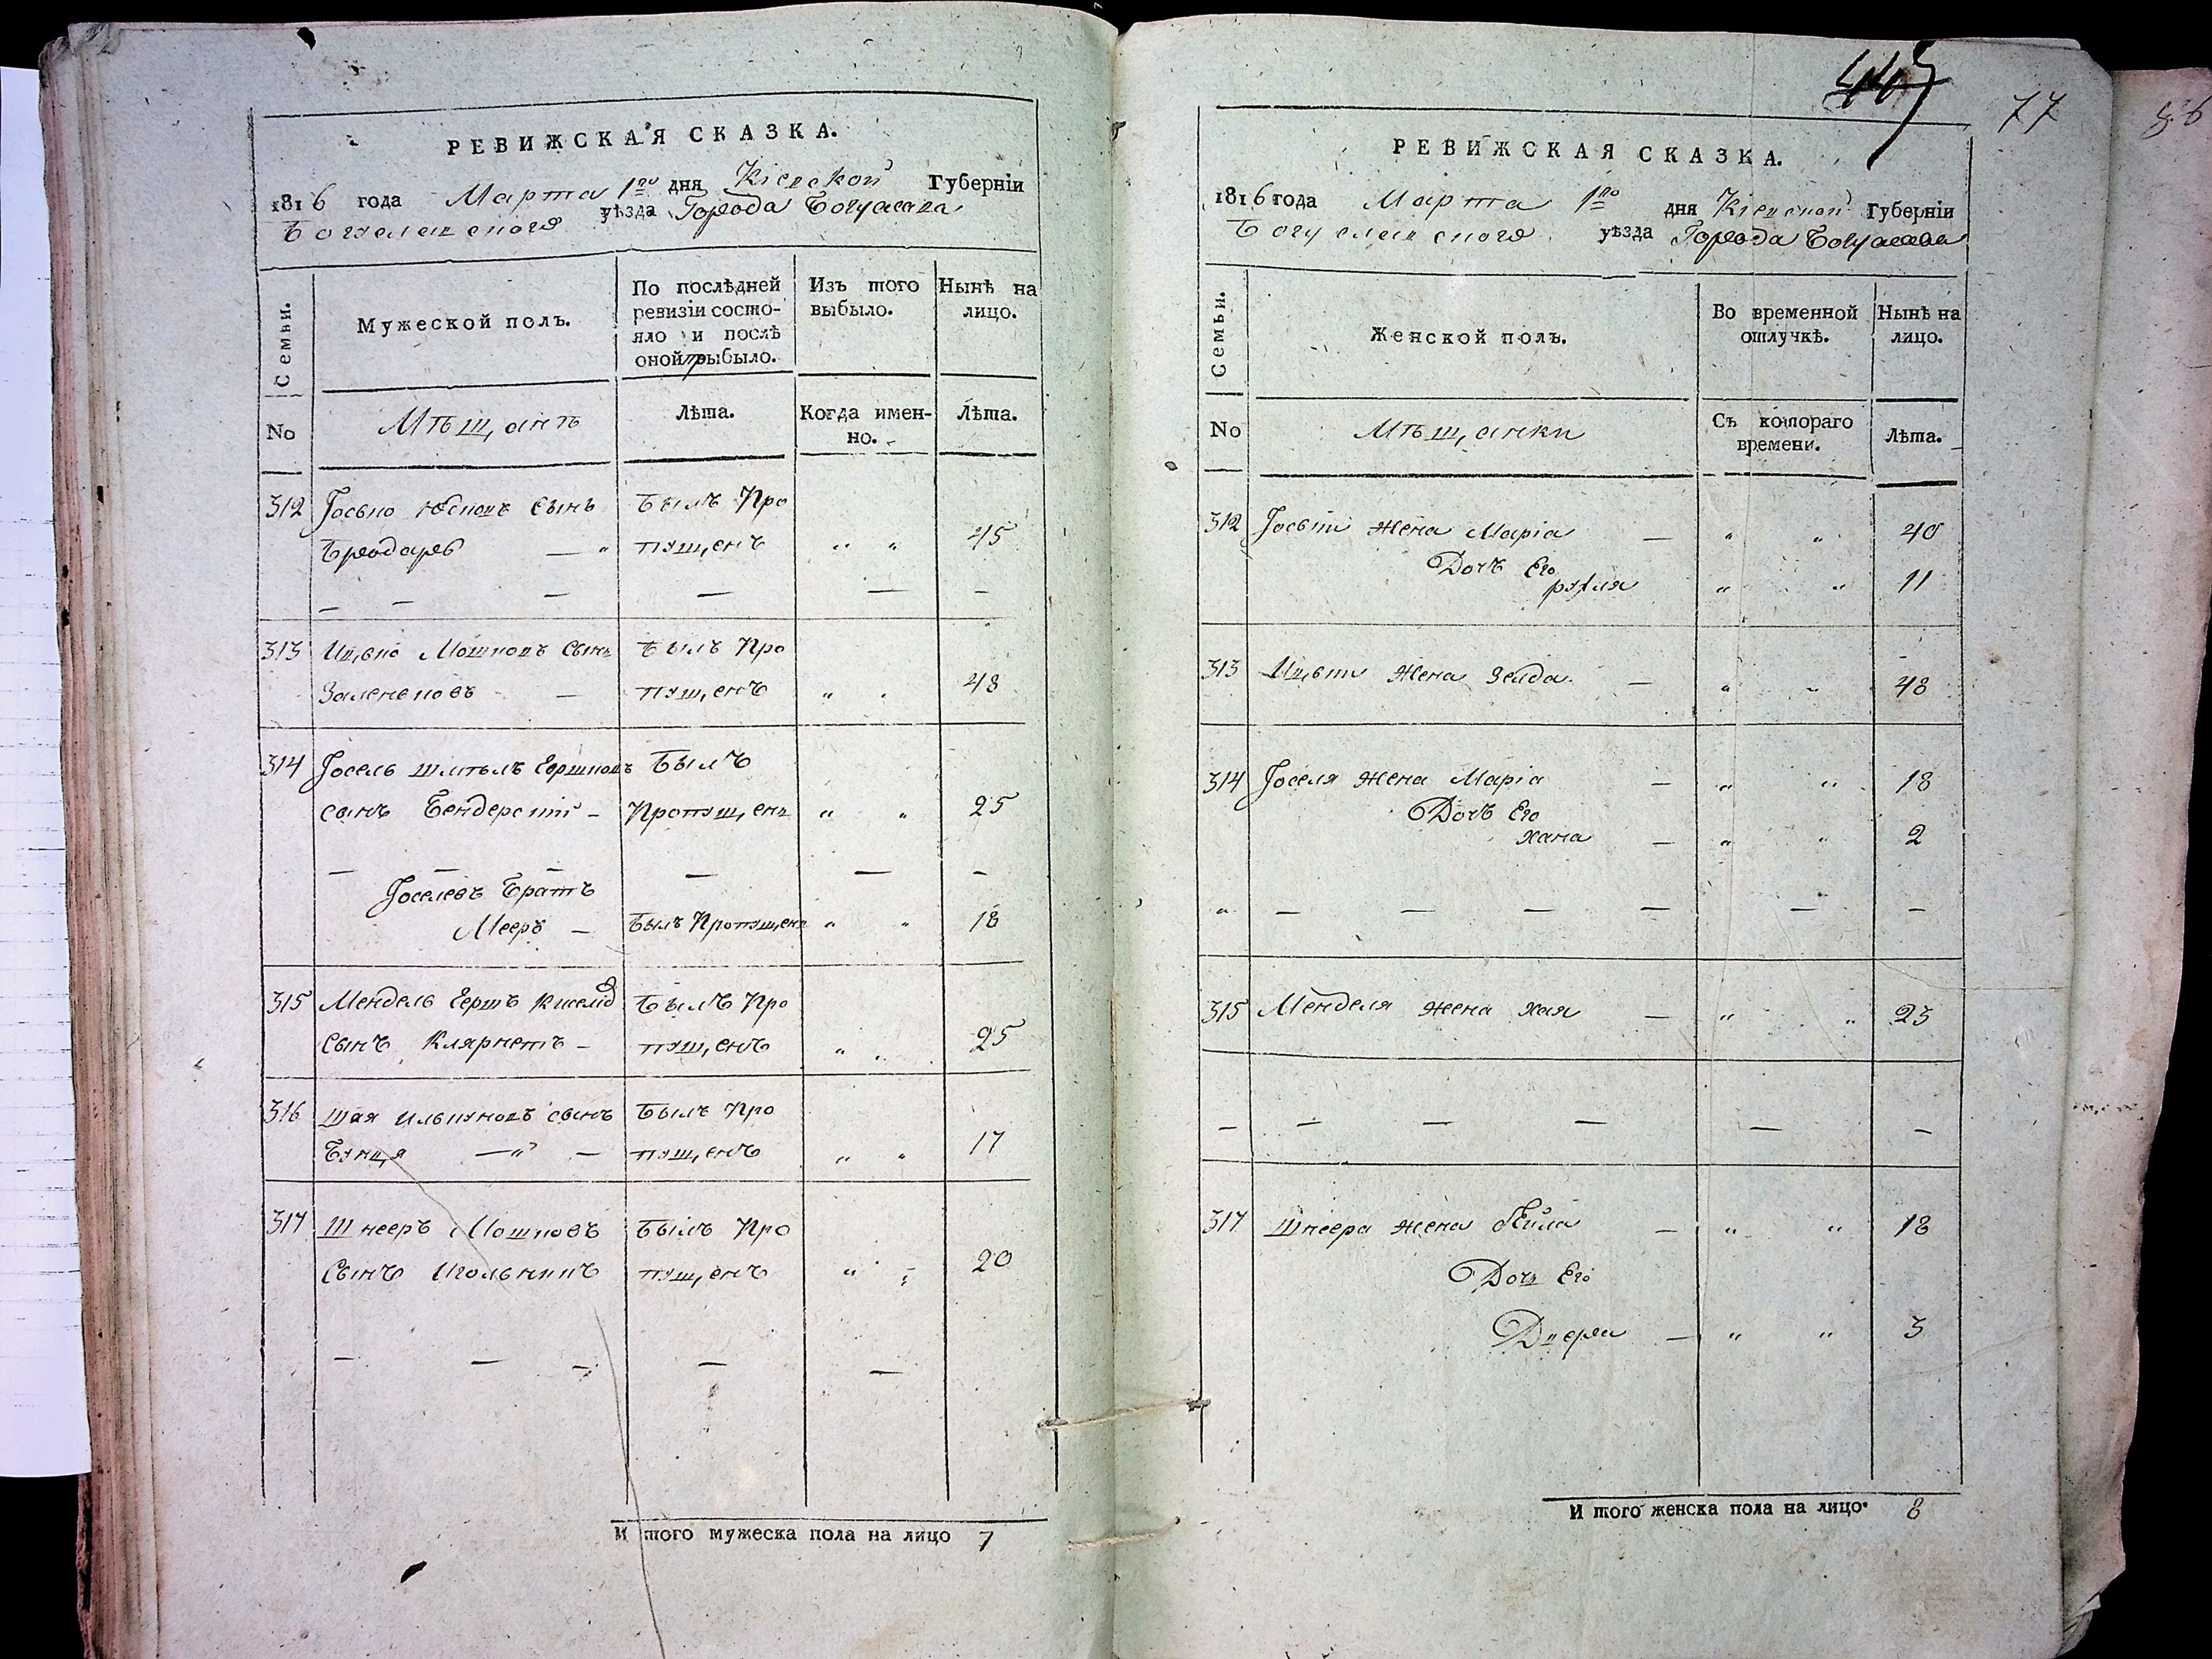 РЕВИЖСКАЯ СКАЗКА.
1816 года Марта 1го дня Кіевской Губерніи
Богуславского уѣзда Города Богуслава
Семьи.
Мужеской полъ.
По послѣдней ревизіи состояло и послѣ оной прыбыло.
Изъ того выбыло.
Нынѣ на лицо.
No
Мѣщанъ
Лѣта.
Когда именно.
Лѣта.
312 Іосько сынъ Былъ Про
Бродаръ — " пущенъ " " 45
— — — — — —
313 Ицько Мошковъ сынъ Былъ Про
— пущенъ " " 48
314 Іосель Шмѣлъ Ершковъ Былъ
сынъ Бендерскій — Пропущенъ " " 25
— — — — — —
Іоселевъ Братъ
Мееръ — Былъ Пропущенъ " " 18
315 Мендель Гершъ Былъ Про
сынъ Клярнетъ — пущенъ " " 25
316 Шая сынъ Былъ Про
— " — пущенъ " " 17
317 Шнееръ Мошковъ Былъ Про
Сынъ Игольникъ пущенъ " " 20
— — — — —
И того мужеска пола на лицо 7
445
77
86
РЕВИЖСКАЯ СКАЗКА.
1816 года Марта 1го дня Кіевской Губерніи
Богуславского уѣзда Города Богуслава
Семьи.
Женской полъ.
Во временной отлучкѣ.
Нынѣ на лицо.
No
Мѣщанки
Съ котораго времени.
Лѣта.
312 Іоськи Жена Маріа — " " 40
Дочъ Его
" " 11
313 Ицьки Жена Зелда — " " 48
314 Іоселя Жена Маріа — " " 18
Дочъ Его
Хана — " " 2
" — — — — — —
315 Менделя жена Хая — " " 23
— — — — — —
317 Шнеера жена — " " 18
Дочъ Его
Двера — " " 3
И того женска пола на лицо 8